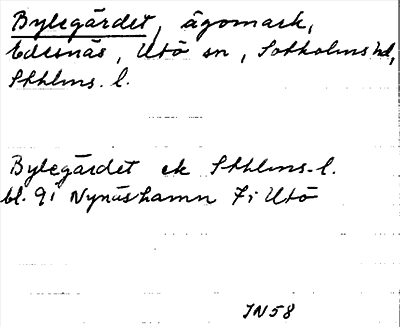 Bylegärdet, ägomark,
Edesnäs, Utö sn, Sotholms hd,
Sthlms. l.
Bylegärdet ek Sthlms. l.
bl. 9i Nynäshamn 7i Utö
IN 58